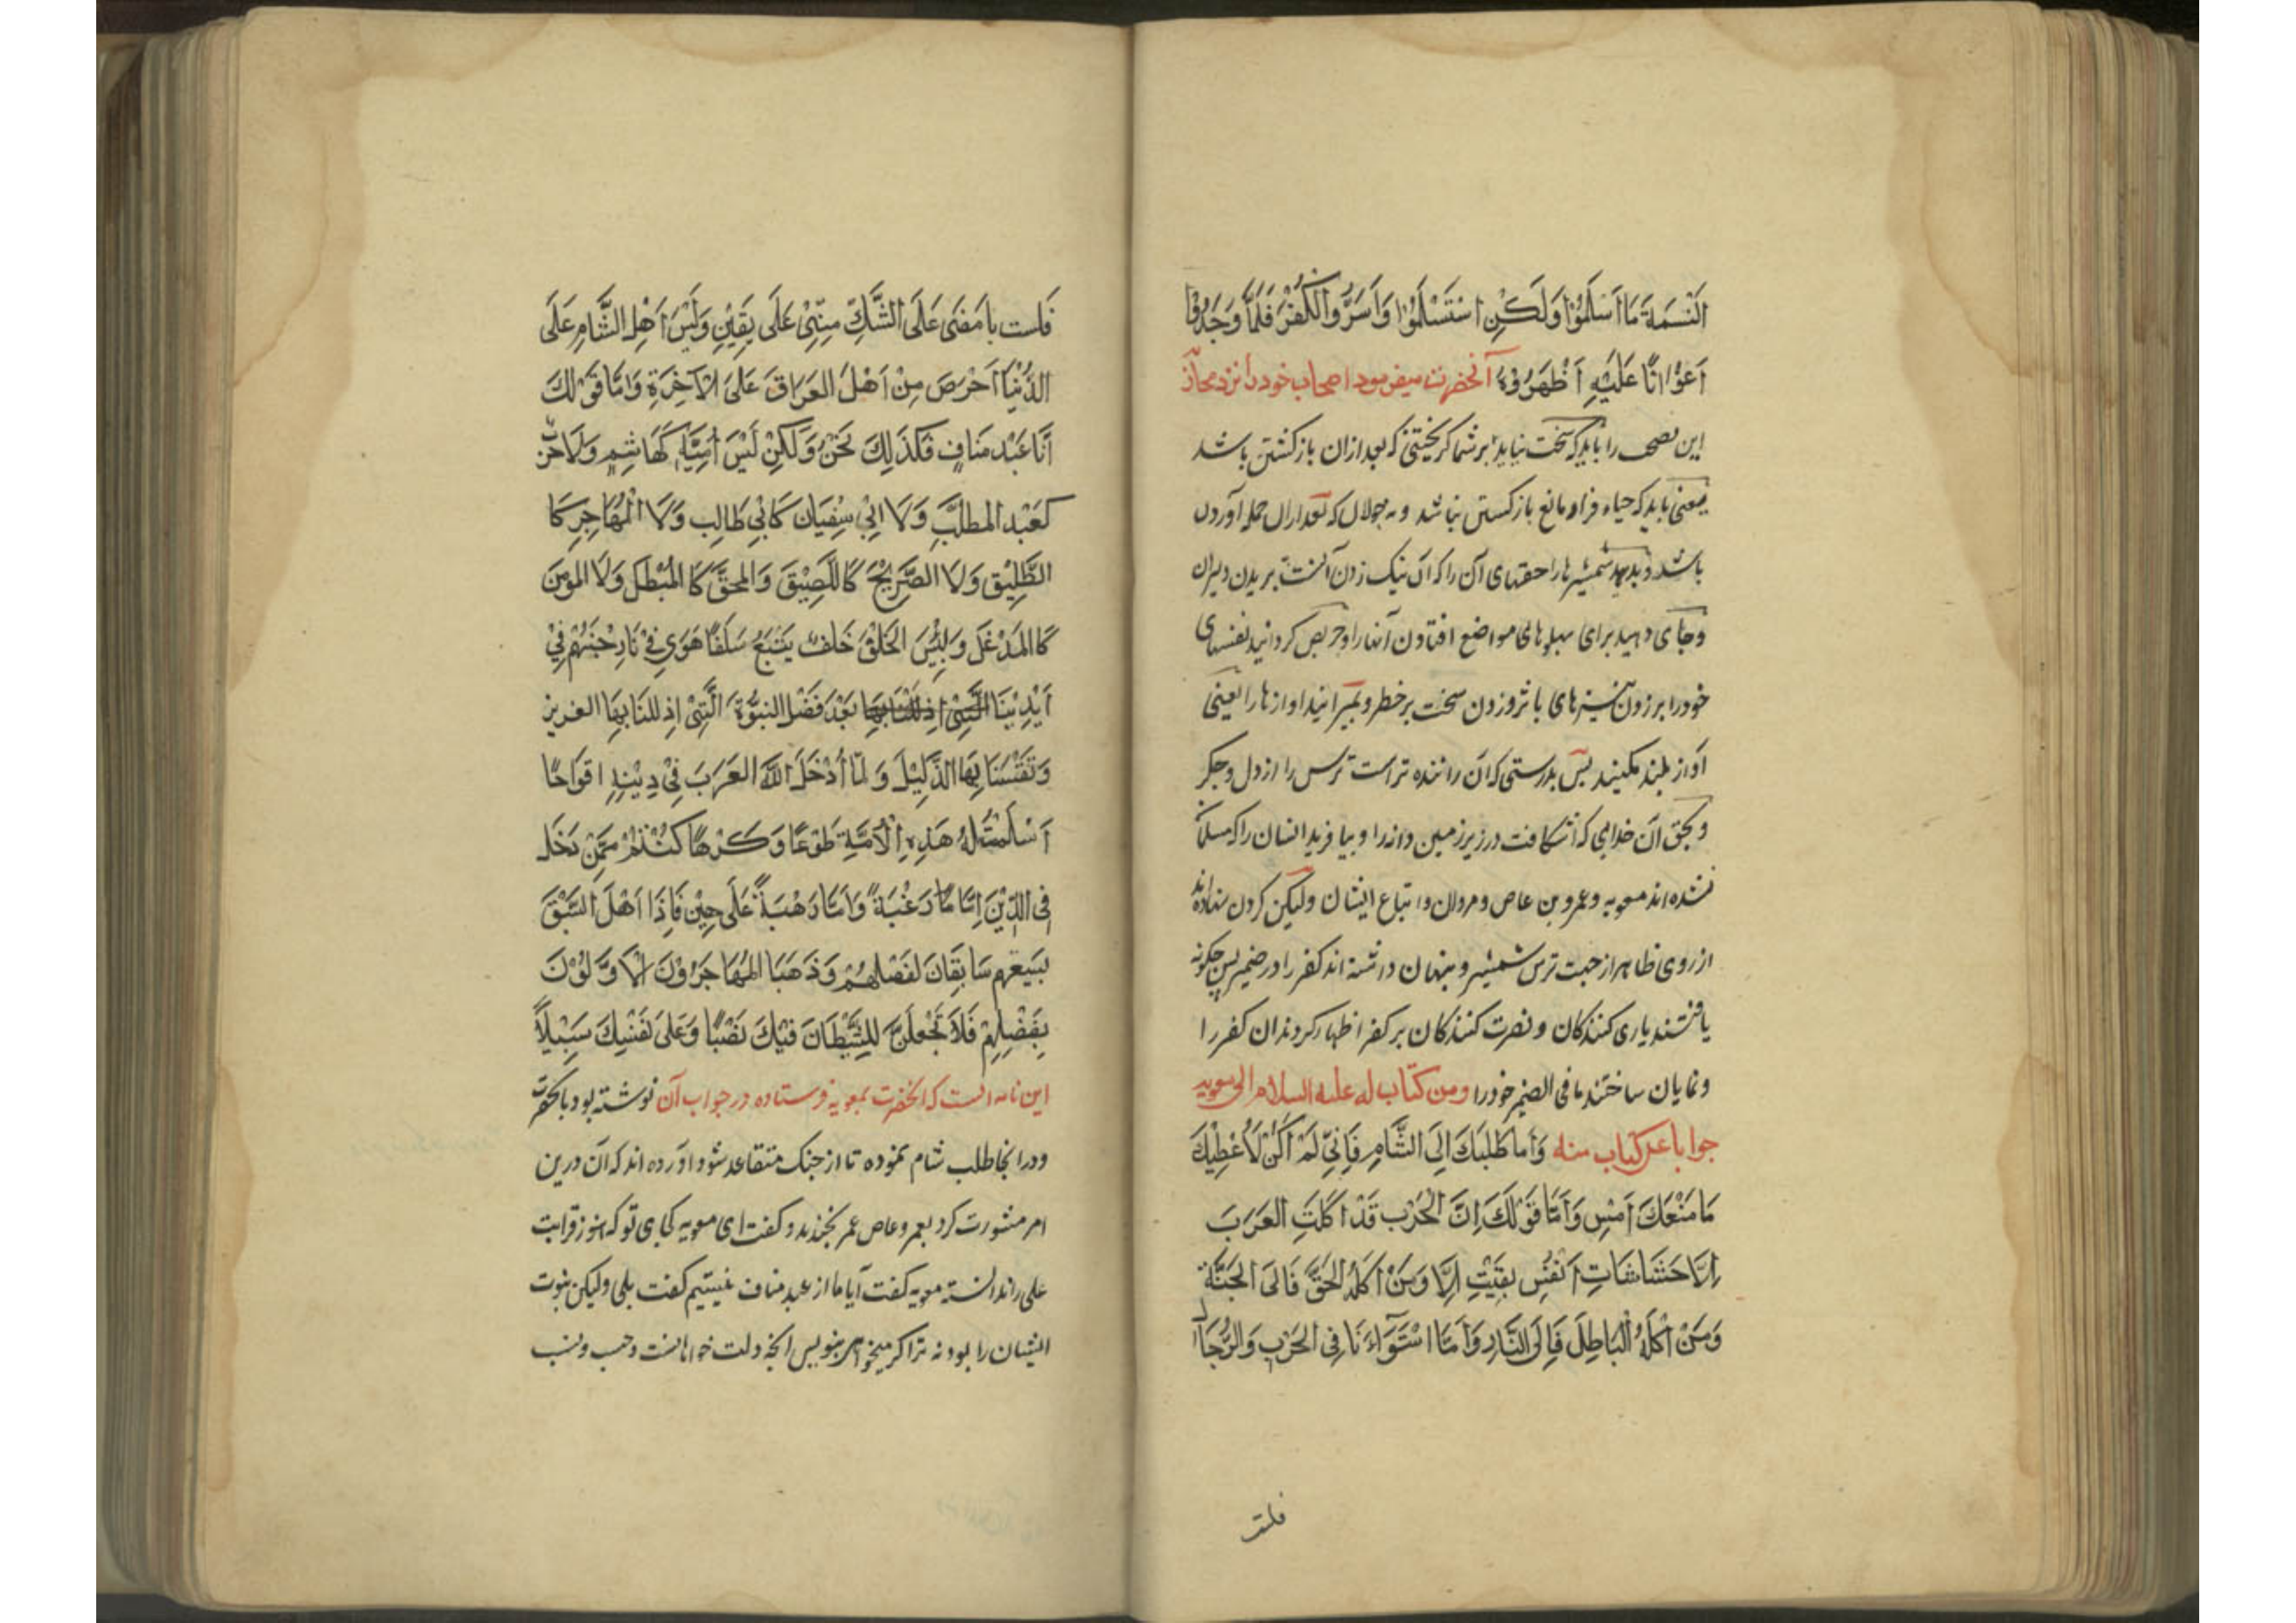 النَّسَمَةَ مَا أَسْلَمُوْا وَلَكِنِ اسْتَسْلَمُوْا وَأَسَرُّوا الْكُفْرَ فَلَمَّا وَجَدُوْا
أَعْوَانًا عَلَيْهِ أَظْهَرُوْهُ آنحضرت میفرمود اصحاب خود را نزد محاربه
این نصحی را باید که سخت نیاید بر شما گریختنی که بعد ازان بازکشتن باشد
یعنی باید که حیاء فرار مانع بازکستن نباشد و نه جولان که بعد ازان حمله آوردن
باشد و بدهید شمشیرها را حقهای آن را که آن نیک زدن آنست بریدن دلیران
وجای دهید برای پهلوهای مواضع افتادن آنها را و حریص کردانید نفسهای
خود را بر زدن نیزهای با ثر و زدن سخت بر خطر و بمیرانید اوازها را یعنی
آواز بلند مکنید پس بدرستی که آن راننده تر است ترس را از دل و جگر
و بحق آن خدایی که اشکافت در زیر زمین دانه را و بیافرید انسان را که مسلمان
نشده اند معویه و عمرو بن عاص و مروان و اتباع ایشان ولیکن کردن نهاده اند
از روی ظاهر از جهت ترس شمشیر و پنهان داشته اند کفر را در ضمیر پس چکونه
یافتند یاری کنندکان و نصرت کنندکان بر کفر اظهار کردند ان کفر را
و نمایان ساختند ما فی الضمیر خود را ومن کتاب له علیه السلام الی معویه
جوابا عن کتاب منه وَأَما طَلَبُكَ اِلَى الشَّامِ فَإِنِّي لَمْ أَكُنْ لَأُعْطِيْكَ
مَا مَنَعْكَ أَمْسِ وَأَمَّا قَوْلَكَ إِنَّ الْحَرْبَ قَدْ أَكَلَتِ الْعَرَبَ
إِلَّا حَشَاشَاتِ أَنْفُسٍ بَقِيَتْ إِلَّا وَمَنْ أَكَلَهُ الْحَقُّ فَالَى الْجَنَّةِ
وَمَنْ أَكَلَهُ الْبَاطِلُ فَإِلَى النَّارِ وَأَمَّا اسْتِوَاءَنَا فِي الْحَرْبِ وَالرِّجَالِ
فلست
فَلَست بِأَمْضَى عَلَى الشَّكِّ مِنِّي عَلَى يَقِيْنٍ وَلَيْسَ أَهْلُ الشَّامِ عَلَى
الدُّنْيَا أَحْرَصَ مِنْ أَهْلِ الْعَرَاقِ عَلَى الْآخِرَةِ وَأَمَّا قَوْلُكَ
أَنَا عَبْد مَنَافٍ فَكَذَلِكَ نَحْنُ وَلَكِنْ لَيْسَ أُمَيَّةُ كَهَاشِمٍ وَلَا حَرْبٌ
كَعَبْد المطلب وَلَا ابِيْ سِفْيَان كَابِيْ طَالِب وَلَا الْمُهَاجِر كَا
الطَّلِيْقِ وَلَا الصَّرِيْحُ كَاللَّصِيْقِ وَالمحقُّ كَا الْمُبْطِلِ وَلَا المؤمن
كَا المَدْغَلِ وَلَبِئْسَ الْخَلَقَ خَلفٌ يَتْبَعُ سَلَفًا هَوَي فِيْ نَارِ جَهَنَّمَ فِيْ
أَيْدِيْنَا بَعْدَ فَضْلِ النبوَّةِ الَّتِيْ اذللنَا بِهَا العزيز
وَنَعَشْنَا بِهَا الذَّلِيْلَ وَ لمّا أَدْخَلَ اللَّهُ الْعَرَبَ فِيْ دِيْنِهِ افْوَاجًا
أَسْلَمَتْ لَهُ هَذِهِ الْأُمَّةِ طَوْعًا وَكَرْهًا كُنْتُمْ مِمَّنْ دَخَلَ
فِي الدِّيْنِ اِمَّا رَغْبَةً وَاِمَّا رَهْبَةً عَلَى حِيْنِ فَاِذَا أَهْلَ السَّبْقِ
بِسَبْقِهِم سَابِقَان لفَضْلِهُمْ وَذَهَبَا الْمُهَاجِرُوْنَ الْأَوَّلُوْنَ
بِفَضْلِهِمْ فَلَا تَجْعلَنَّ لِلشَّيْطَانَ فِيْكَ نَصْبًا وَعَلَى نَفْسِكَ سَبِيْلًا
این نامه ایست که آنحضرت بمعویه فرستاده در جواب آن نوشته بود بآنحضرت
و در انجا طلب شام نموده تا از جنک متقاعد شود اورده اند که آن درین
امر مشورت کرد بعمرو عاص عمر بخندید و گفت ای معویه کجای تو که هنوز قرابت
علی را ندانسته معویه کفت آیا ما از عبد مناف نیستیم کفت بلی ولیکن نبوت
ایشان را بود نه ترا اکر میخواهی بنویس انچه دلت خواهانست و حسب و نسب